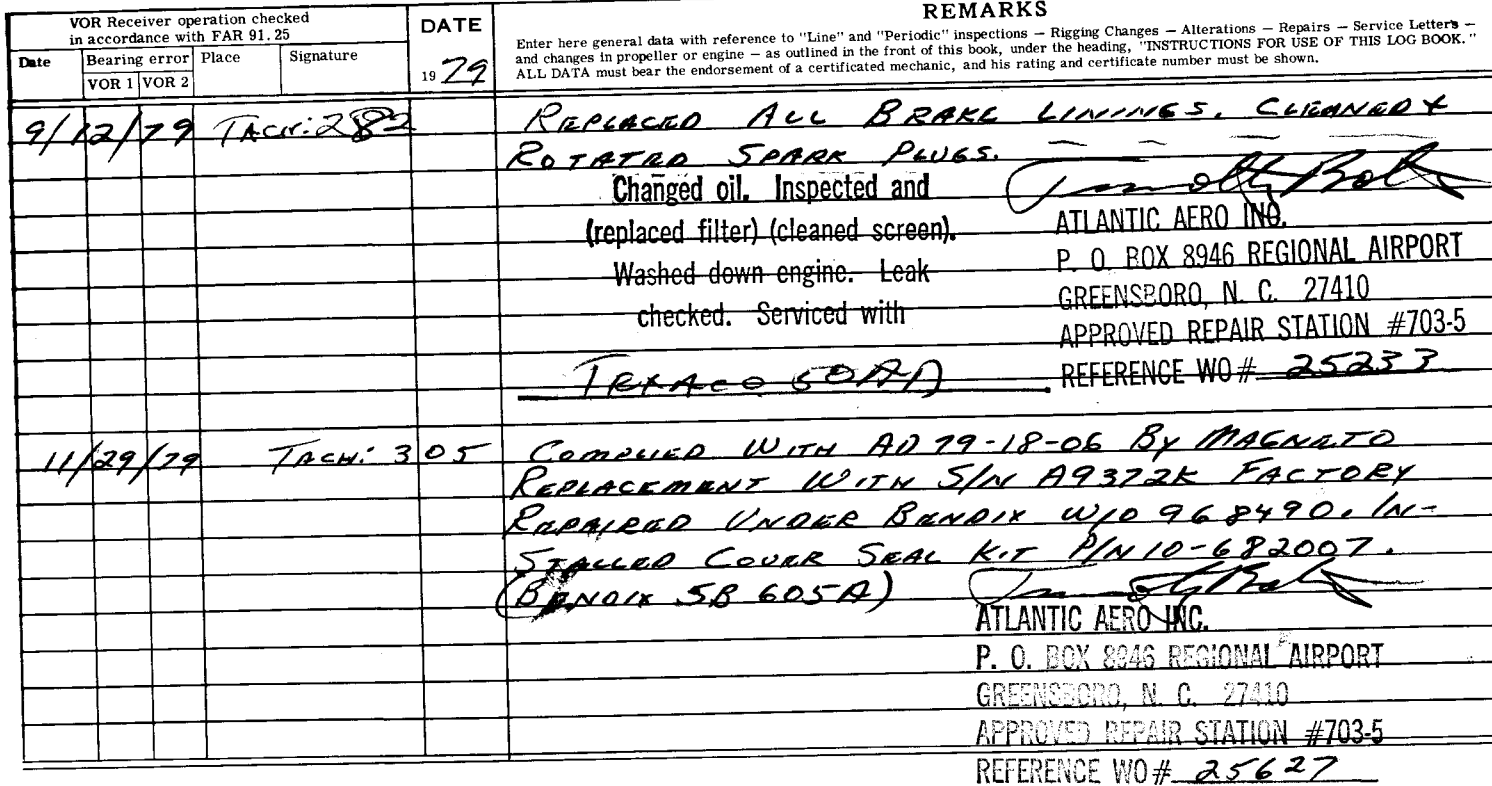 VOR Receiver operation checked
in accordance with FAR 91.25
Date Bearing error Place Signature
VOR 1 VOR 2
DATE
19 79
REMARKS
Enter here general data with reference to "Line" and "Periodic" inspections — Rigging Changes — Alterations — Repairs — Service Letters —
and changes in propeller or engine — as outlined in the front of this book, under the heading, "INSTRUCTIONS FOR USE OF THIS LOG BOOK."
ALL DATA must bear the endorsement of a certificated mechanic, and his rating and certificate number must be shown.
9/12/79 TACH: 282 REPLACED ALL BRAKE LININGS. CLEANED &
ROTATED SPARK PLUGS.
Changed oil. Inspected and
(replaced filter) (cleaned screen).
Washed down engine. Leak
checked. Serviced with
TEXACO 50AA
ATLANTIC AERO INC.
P. O. BOX 8946 REGIONAL AIRPORT
GREENSBORO, N. C. 27410
APPROVED REPAIR STATION #703-5
REFERENCE WO# 25233
11/29/79 TACH: 305 COMPLIED WITH AD 79-18-06 BY MAGNETO
REPLACEMENT WITH S/N A9372K FACTORY
REPAIRED UNDER BENDIX W/O 968490. IN-
STALLED COVER SEAL KIT P/N 10-682007.
(BENDIX SB 605A)
ATLANTIC AERO INC.
P. O. BOX 8946 REGIONAL AIRPORT
GREENSBORO, N. C. 27410
APPROVED REPAIR STATION #703-5
REFERENCE WO# 25627